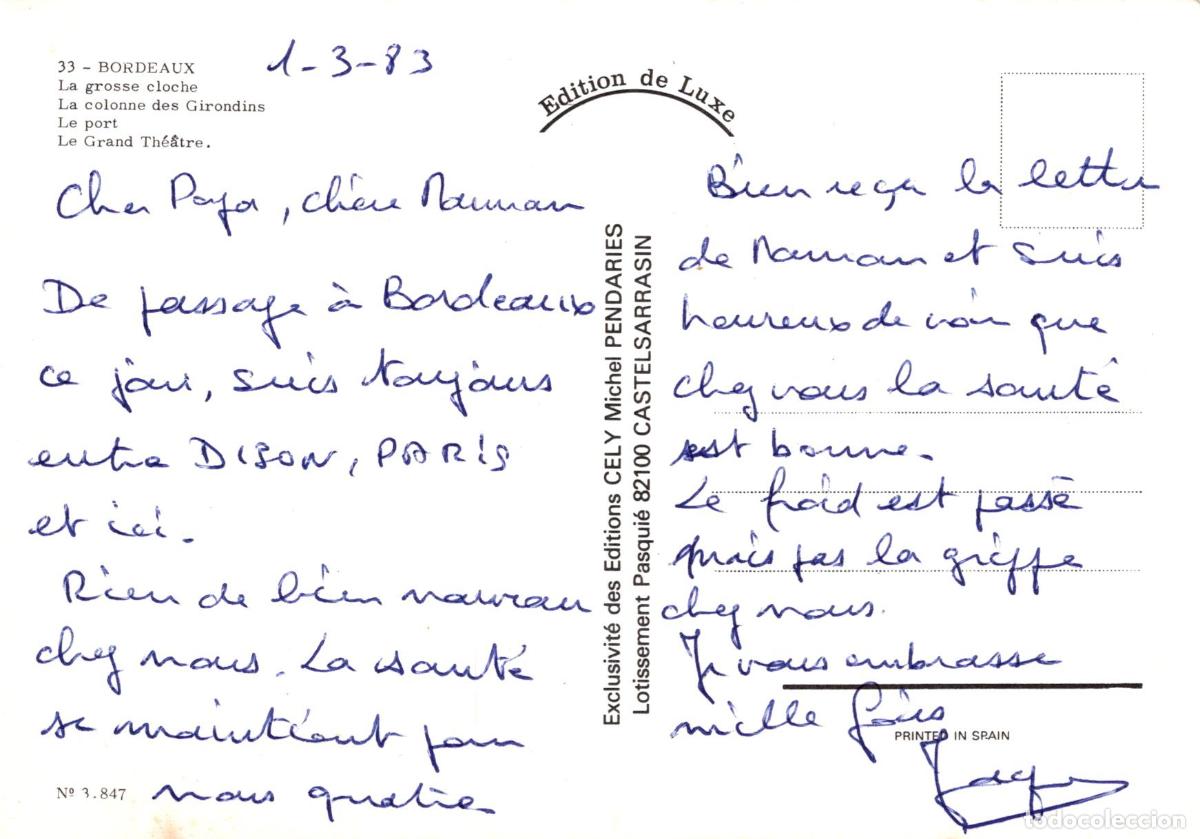 33 - BORDEAUX
La grosse cloche
La colonne des Girondins
Le port
Le Grand Théâtre.
1-3-83
Cher Papa, chère Maman
De passage à Bordeaux
ce jour, suis toujours
entre DIJON, PARIS
et ici.
Rien de bien nouveau
chez nous. La santé
se maintient pour
nous quatre
Nº 3.847
Edition de Luxe
Exclusivité des Editions CELY Michel PENDARIES
Lotissement Pasquié 82100 CASTELSARRASIN
Bien reçu la lettre
de Maman et suis
heureux de voir que
chez vous la santé
est bonne.
Le froid est passé
mais pas la grippe
chez nous.
Je vous embrasse
mille fois
PRINTED IN SPAIN
todocoleccion